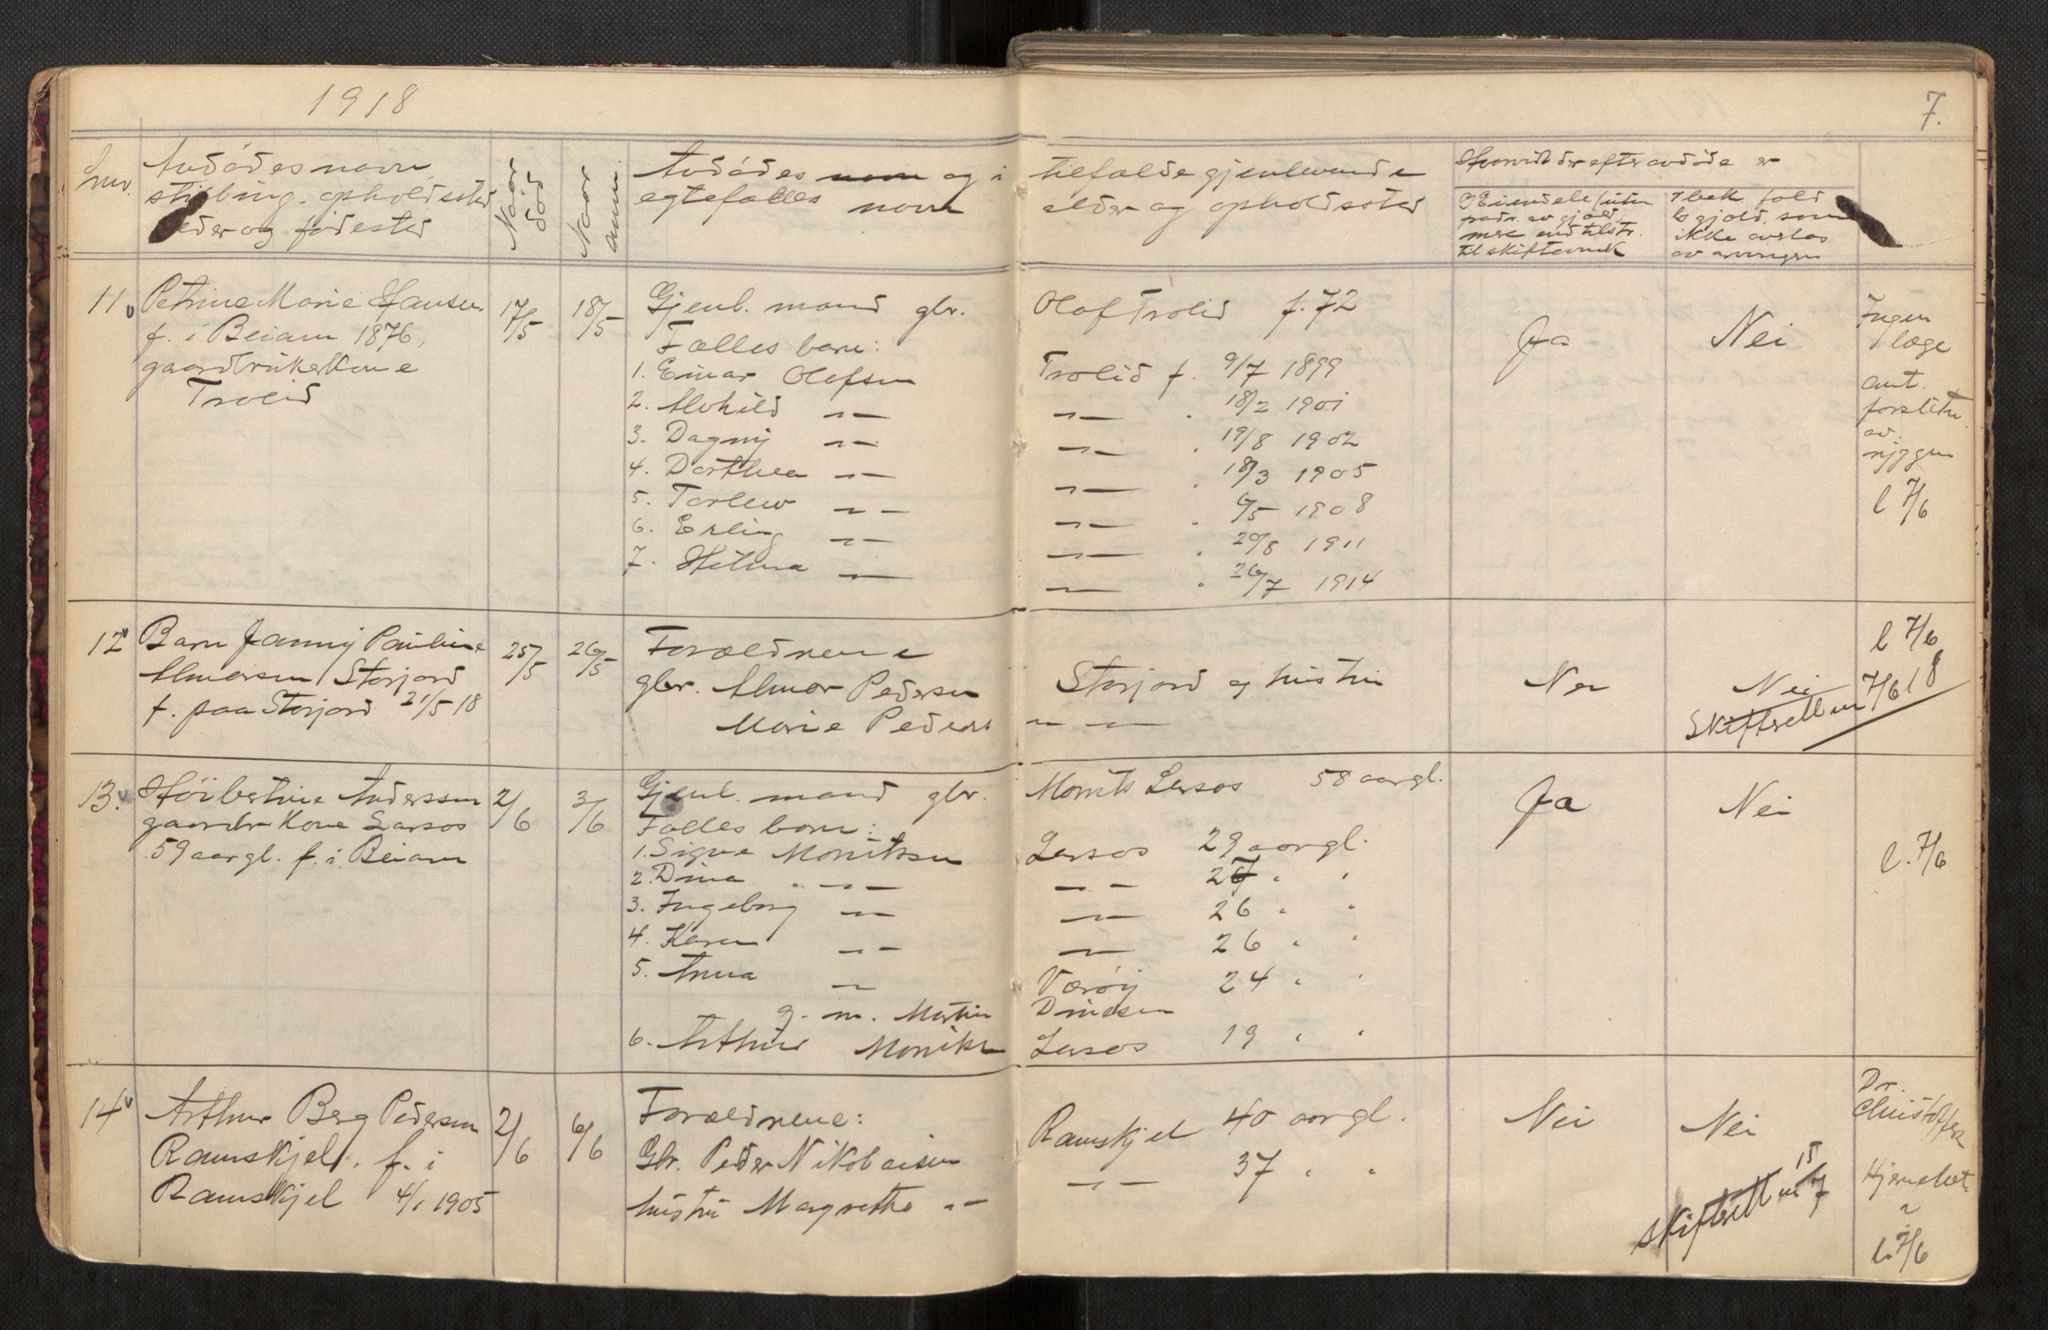 1918
7.
Lnr.
Avdödes navn
stilling, opholdssted
og fødested
Naar
död
Naar
anm.
Avdødes navn og i
egtefælles navn
tilfælde gjenlevende
alder og opholdssted
Hvorvidt der efter avdøde er
av gjæld
mere end tilstr.
til skifteomk
gjæld, som
ikke overtas
av arvingen
11
Petrine Marie Hansen
f. i Beiarn 1876,
gaardbrukerkone
Trolid
17/5
18/5
Gjenl. mand gbr.
Olaf Trolid f. 72
Ja
Nei
Ingen
læge
ant.
av:
l 7/6
Fælles barn:
1. Einar Olafsen
Trolid f. 9/7 1899
2. Alvhild —"—
—"— " 18/2 1901
3. Dagny —"—
—"— " 19/8 1902
4. Dorthea —"—
—"— " 18/3 1905
5. Torlew —"—
—"— " 6/5 1908
6. Erling —"—
—"— " 20/8 1911
7. Hilma —"—
—"— " 26/7 1914
12
Barn Fanny Pauline
Almersen Storjord
f. paa Storjord 21/5 18
25/5
26/5
Forældrene
gbr. Almer Pedersen
Storjord og hustru
Marie Peders
—"—
Nei
Nei
Skifteretten 7/6 18
l 7/6
13.
Höibertine Anderssen
gaardbr kone Larsos
59 aar gl. f. i Beiarn
2/6
3/6
Gjenl. mand gbr.
Morits Larsos 58 aar gl.
Ja
Nei
l. 7/6
Fælles barn:
1. Signe Moritssen
Larsos 29 aar gl.
2. Dina —"—
—"— 27 " "
3. Ingeborg —"—
—"— 26 " "
4. Karen —"—
—"— 26 " "
5. Anna —"—
Værøy 24 " "
g. m. Martin
6. Arthur Morits
Larsos 19 " "
14
Arthur Berg Pedersen
Ramskjel, f. i
Ramskjel 4/1 1905
2/6
6/6
Forældrene:
Gbr. Peder Nikolaisen
Ramskjel 40 aar gl.
hustru Margrethe —"—
—"— 37 " "
Nei
Nei
Skifteretten 15/7
Dr.
l. 7/6